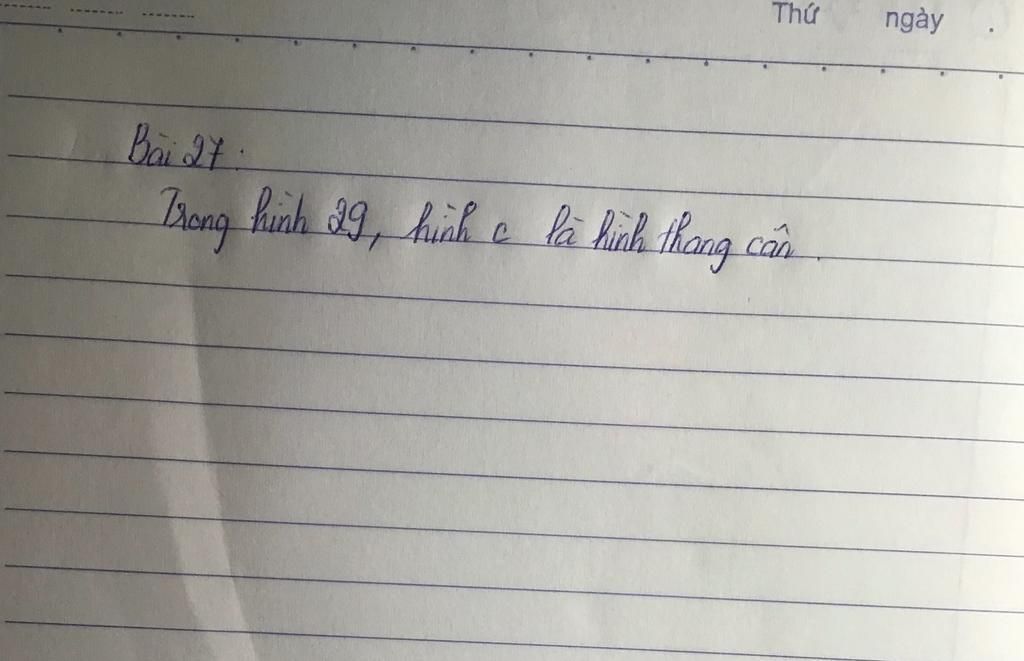 Thứ ngày .
Bài 27.
Trong hình 29, hình c là hình thang cân.